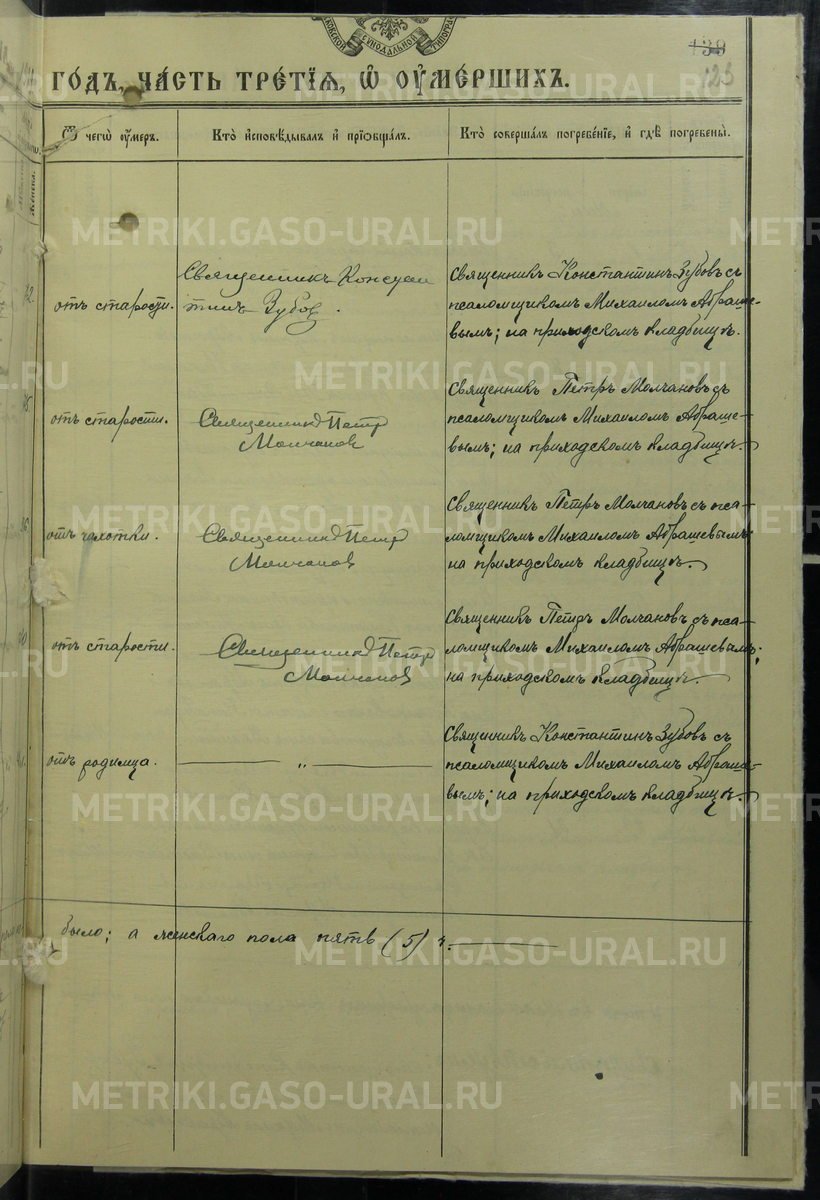 СѴНОДАЛЬНОЙ
139
123
ГО́ДЪ, ЧА́СТЬ ТРЕ́ТІѦ, Ѡ҆ ОУ҆МЕ́РШИХЪ.
Ѿ чегѡ̀ оу҆́меръ.
Кто̀ и҆сповѣ́дывалъ и҆ прїѡбща́лъ.
Кто̀ соверша́лъ погребе́нїе, и҆ гдѣ̀ погребены̀.
отъ старости.
Священникъ Констан
тинъ Зубов.
Священникъ Константинъ Зубовъ съ
псаломщикомъ Михаиломъ Абраше-
вымъ; на приходскомъ кладбищѣ.
отъ старости.
Священникъ Петр
Молчанов
Священникъ Петръ Молчановъ съ
псаломщикомъ Михаиломъ Абраше-
вымъ; на приходскомъ кладбищѣ.
отъ чахотки.
Священникъ Петр
Молчанов
Священникъ Петръ Молчановъ съ пса-
ломщикомъ Михаиломъ Абрашевымъ;
на приходскомъ кладбищѣ.
отъ старости.
Священникъ Петр
Молчанов
Священникъ Петръ Молчановъ съ пса-
ломщикомъ Михаиломъ Абрашевымъ;
на приходскомъ кладбищѣ.
отъ родимца.
— „ —
Священникъ Константинъ Зубовъ съ
псаломщикомъ Михаиломъ Абраше-
вымъ; на приходскомъ кладбищѣ.
было; а женскаго пола пять (5) ч.
METRIKI.GASO-URAL.RU